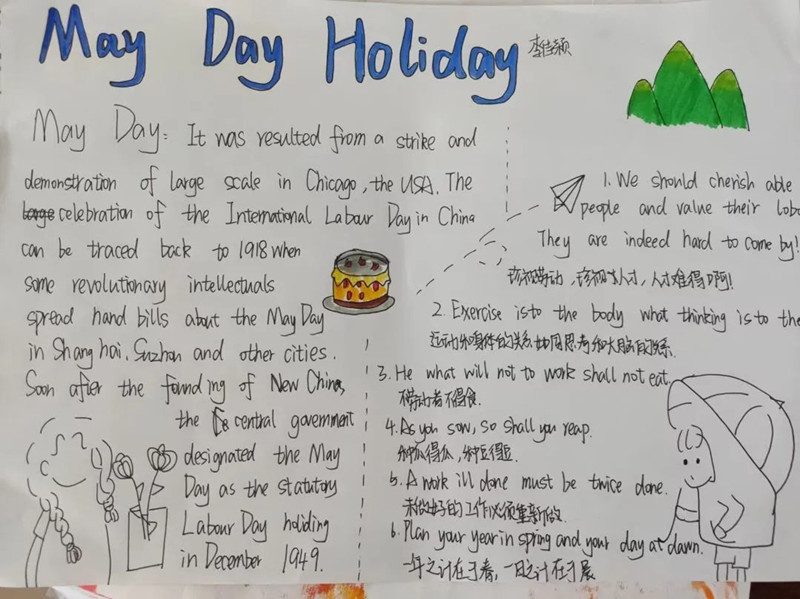 May Day Holiday
李佳颖
May Day: It was resulted from a strike and
demonstration of large scale in Chicago, the USA. The
celebration of the International Labour Day in China
can be traced back to 1918 when
some revolutionary intellectuals
spread hand bills about the May Day
in Shang hai. Suzhou and other cities.
Soon after the founding of New China,
the central government
designated the May
Day as the statutory
Labour Day holiding
in December 1949.
1. We should cherish able
people and value their
They are indeed hard to come by!
珍视劳动,珍视人才,人才难得啊!
2. Exercise is to the body what thinking is to the
运动和身体的关系如同思考和大脑的关系.
3. He what will not to work shall not eat.
不劳动者不得食.
4. As you sow, so shall you reap.
种瓜得瓜,种豆得豆.
5. A work ill done must be twice done.
未做好的工作必须重新做.
6. Plan your year in spring and your day at dawn.
一年之计在于春,一日之计在于晨